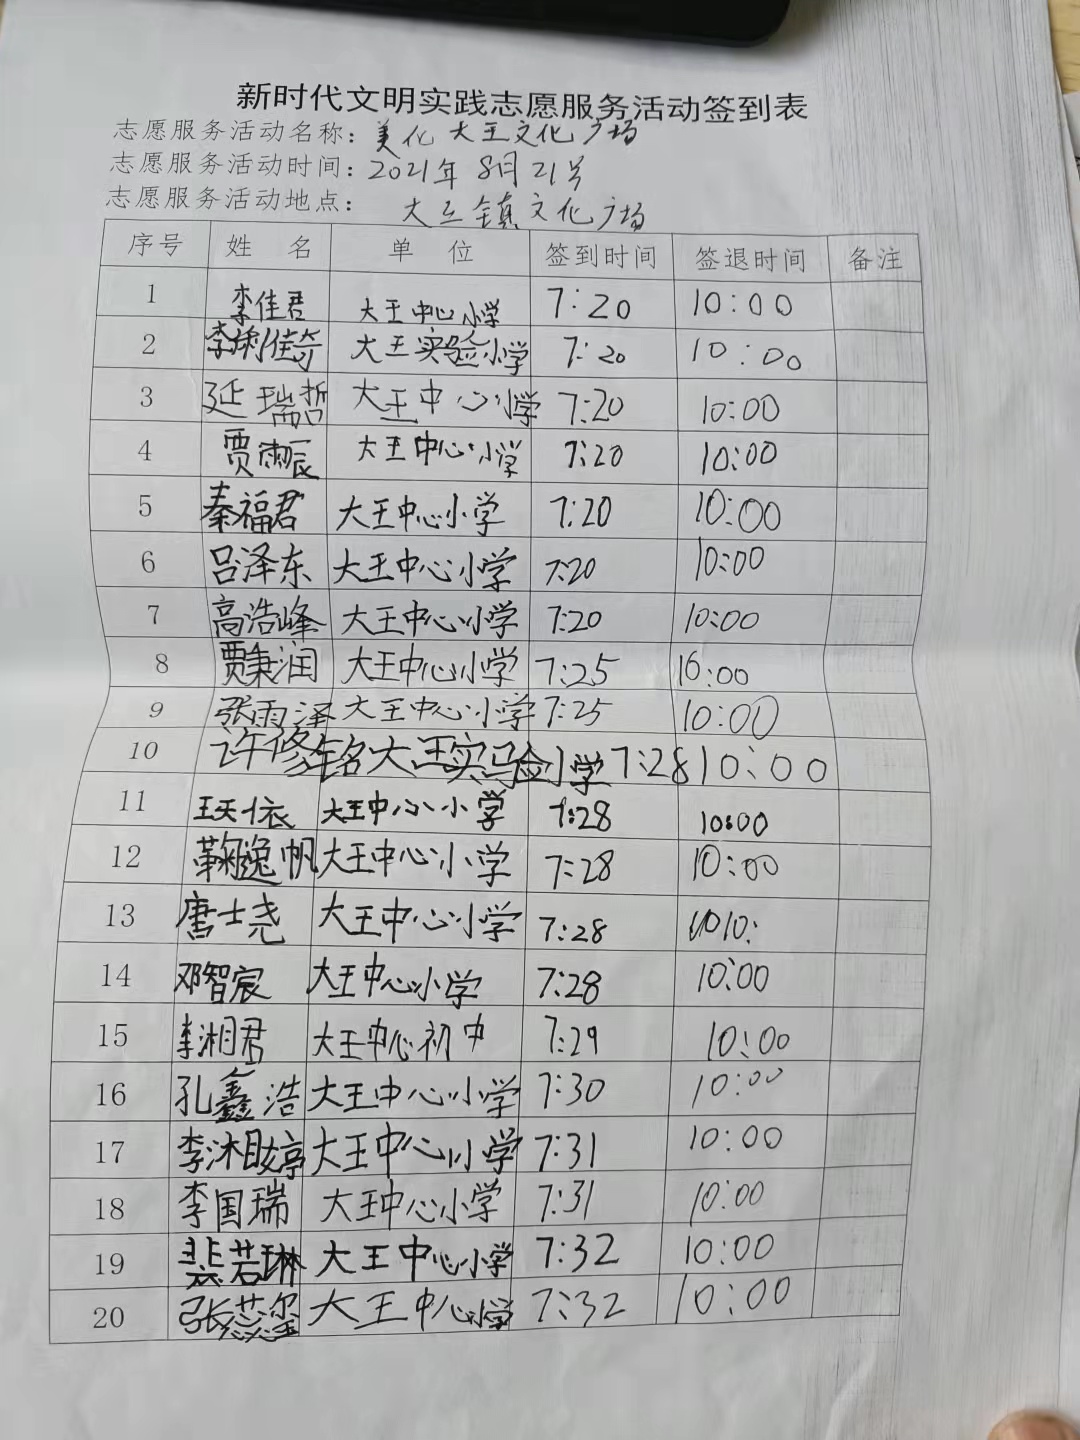 新时代文明实践志愿服务活动签到表
志愿服务活动名称：美化大王文化广场
志愿服务活动时间：2021年8月21号
志愿服务活动地点： 大王镇文化广场
序号 姓 名 单 位 签到时间 签退时间 备注
1 李佳君 大王中心小学 7:20 10:00
2 大王实验小学 7:20 10:00
3 延瑞哲 大王中心小学 7:20 10:00
4 贾雨辰 大王中心小学 7:20 10:00
5 秦福君 大王中心小学 7:20 10:00
6 吕泽东 大王中心小学 7:20 10:00
7 高浩峰 大王中心小学 7:20 10:00
8 贾秉润 大王中心小学 7:25 10:00
9 张雨泽 大王中心小学 7:25 10:00
10 许修铭 大王实验小学 7:28 10:00
11 王天依 大王中心小学 7:28 10:00
12 鞠逸帆 大王中心小学 7:28 10:00
13 唐士尧 大王中心小学 7:28 10:
14 邓智宸 大王中心小学 7:28 10:00
15 李湘君 大王中心初中 7:29 10:00
16 孔鑫浩 大王中心小学 7:30 10:00
17 大王中心小学 7:31 10:00
18 李国瑞 大王中心小学 7:31 10:00
19 裴若琳 大王中心小学 7:32 10:00
20 大王中心小学 7:32 10:00